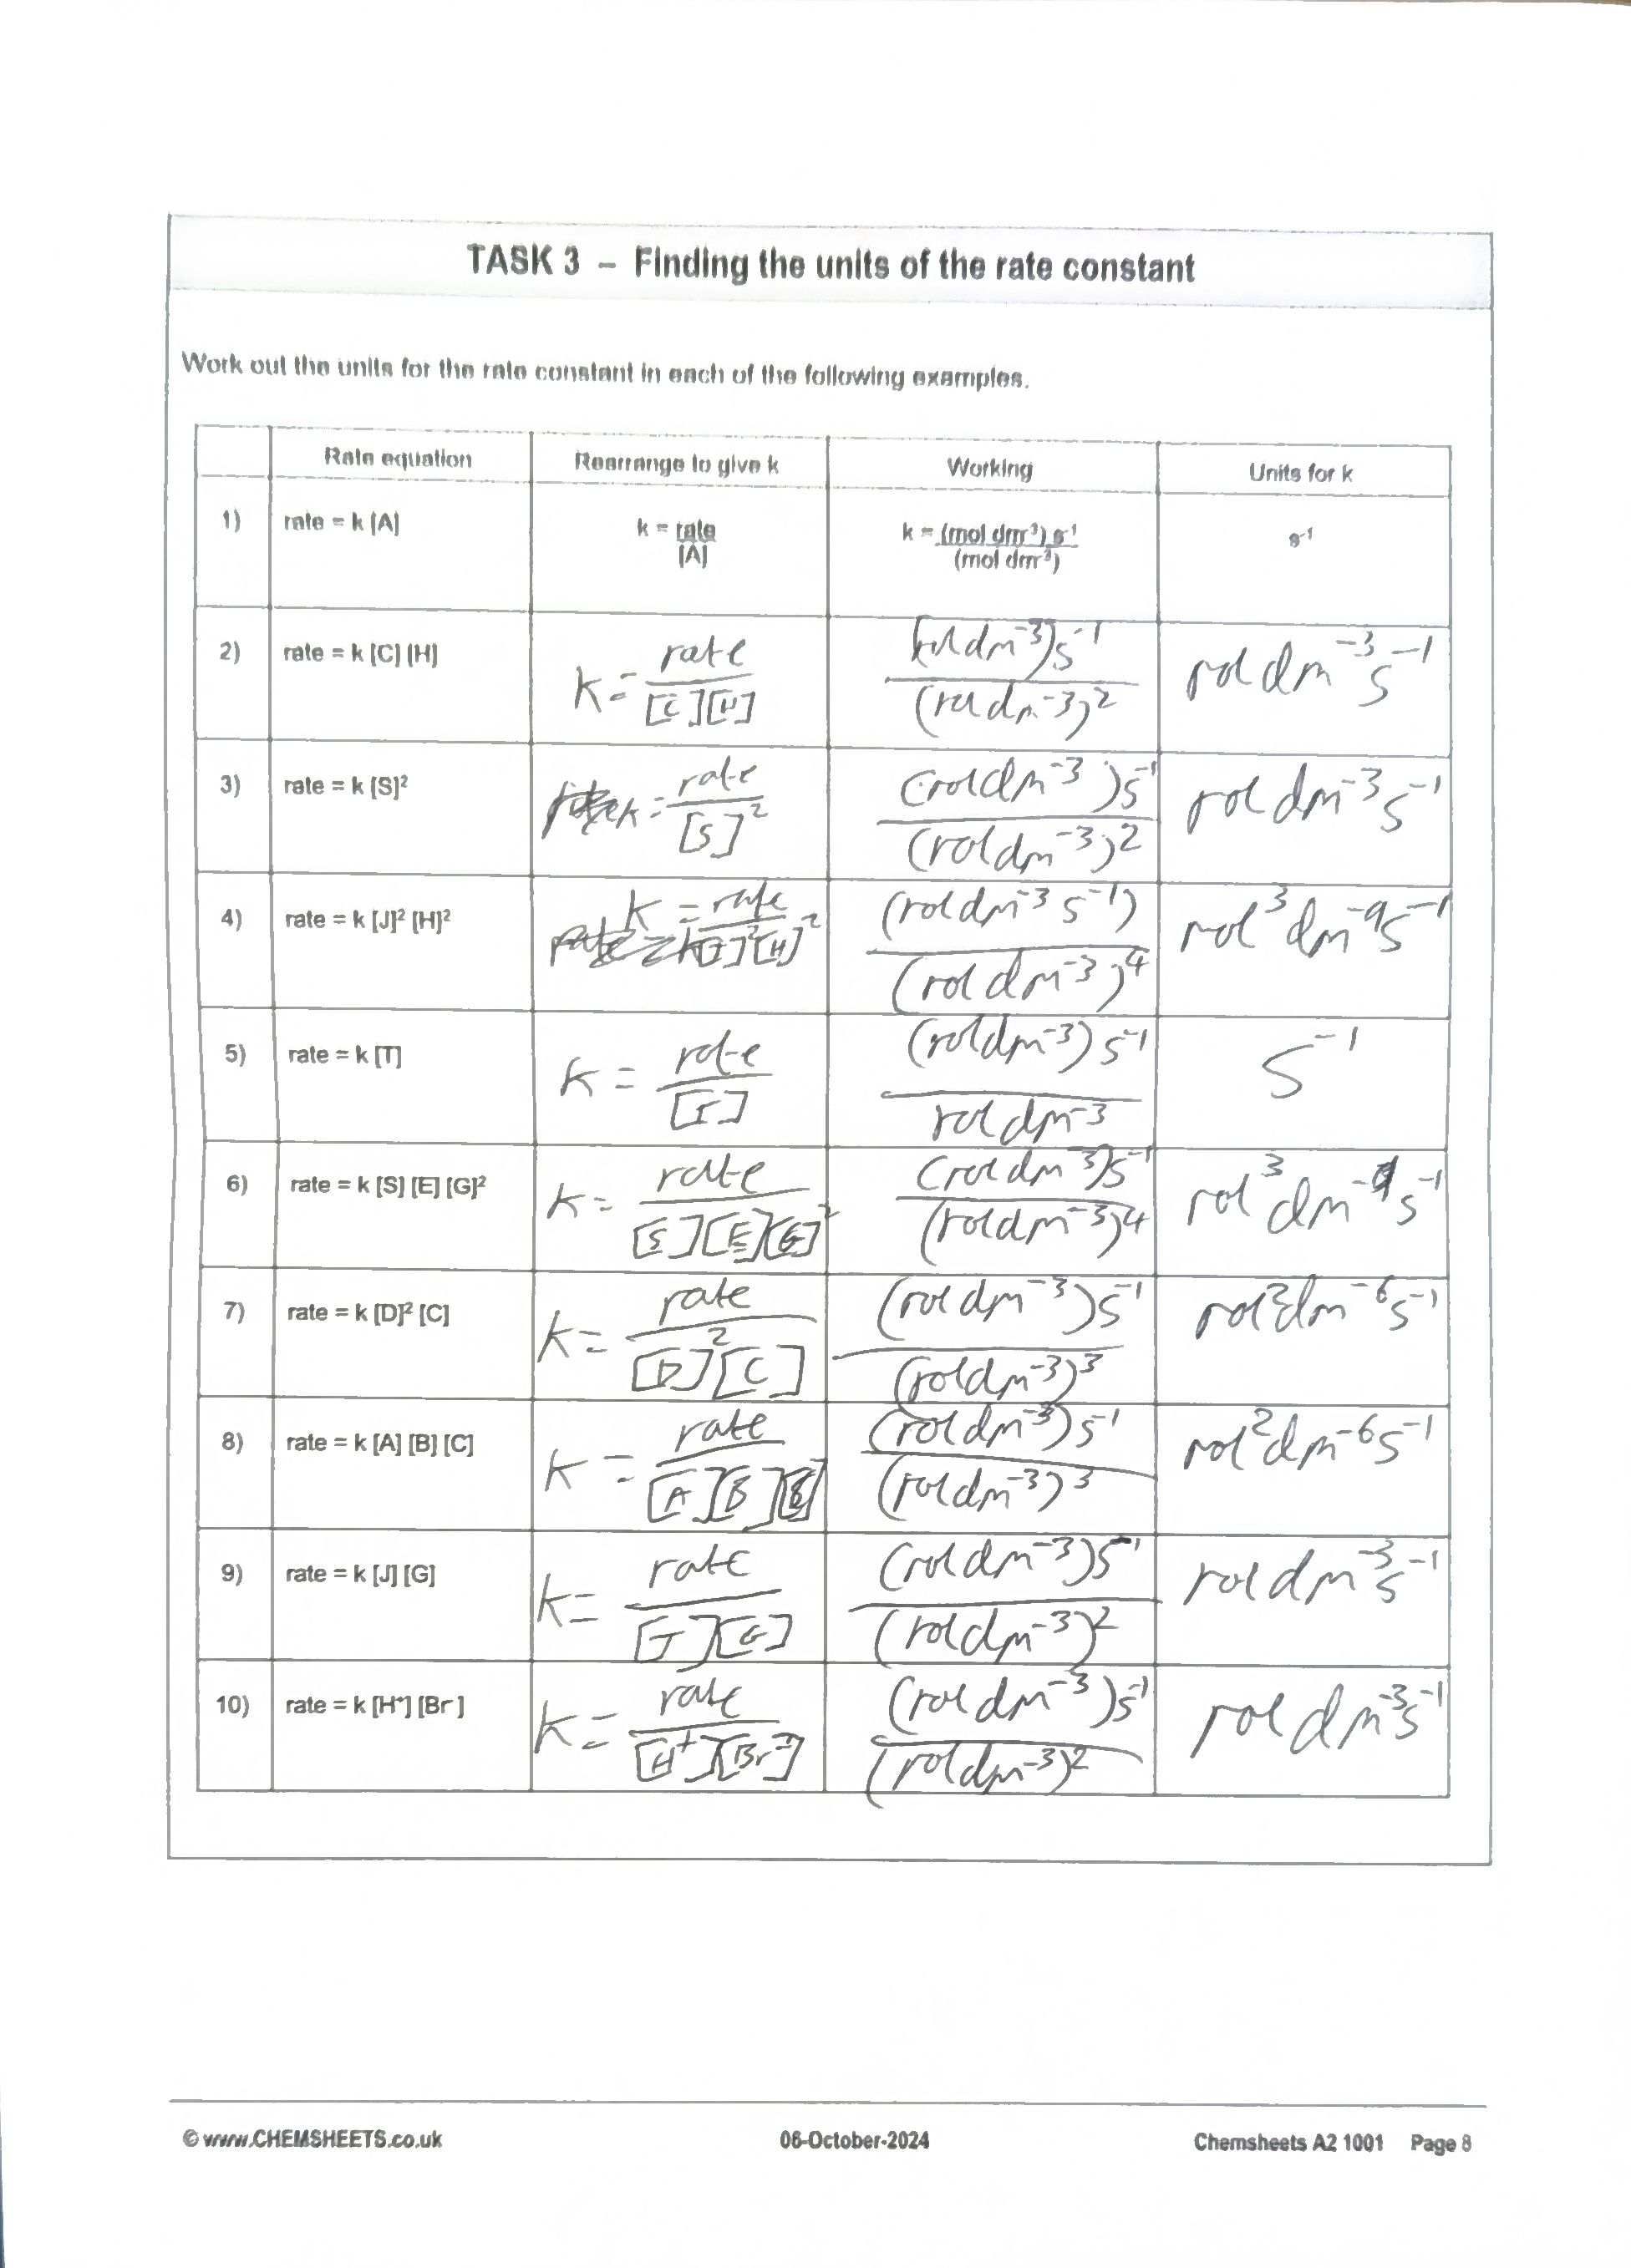 TASK 3 – Finding the units of the rate constant
Work out the units for the rate constant in each of the following examples.
Rate equation Rearrange to give k Working Units for k
1) rate = k [A] k = rate / [A] k = (mol dm⁻³) s⁻¹ / (mol dm⁻³) s⁻¹
2) rate = k [C] [H] k = rate / [C][H] (mol dm⁻³)s⁻¹ / (mol dm⁻³)² mol dm⁻³ s⁻¹
3) rate = k [S]² k = rate / [S]² (mol dm⁻³)s⁻¹ / (mol dm⁻³)² mol dm⁻³ s⁻¹
4) rate = k [J]² [H]² k = rate / [J]²[H]² (mol dm⁻³ s⁻¹) / (mol dm⁻³)⁴ mol³ dm⁻⁹ s⁻¹
5) rate = k [T] k = rate / [T] (mol dm⁻³) s⁻¹ / mol dm⁻³ s⁻¹
6) rate = k [S] [E] [G]² k = rate / [S][E][G]² (mol dm⁻³)s⁻¹ / (mol dm⁻³)⁴ mol³ dm⁻⁹ s⁻¹
7) rate = k [D]² [C] k = rate / [D]²[C] (mol dm⁻³)s⁻¹ / (mol dm⁻³)³ mol² dm⁻⁶ s⁻¹
8) rate = k [A] [B] [C] k = rate / [A][B][C] (mol dm⁻³)s⁻¹ / (mol dm⁻³)³ mol² dm⁻⁶ s⁻¹
9) rate = k [J] [G] k = rate / [J][G] (mol dm⁻³)s⁻¹ / (mol dm⁻³)² mol dm⁻³ s⁻¹
10) rate = k [H⁺] [Br⁻] k = rate / [H⁺][Br⁻] (mol dm⁻³)s⁻¹ / (mol dm⁻³)² mol dm⁻³ s⁻¹
© www.CHEMSHEETS.co.uk 06-October-2024 Chemsheets A2 1001 Page 8